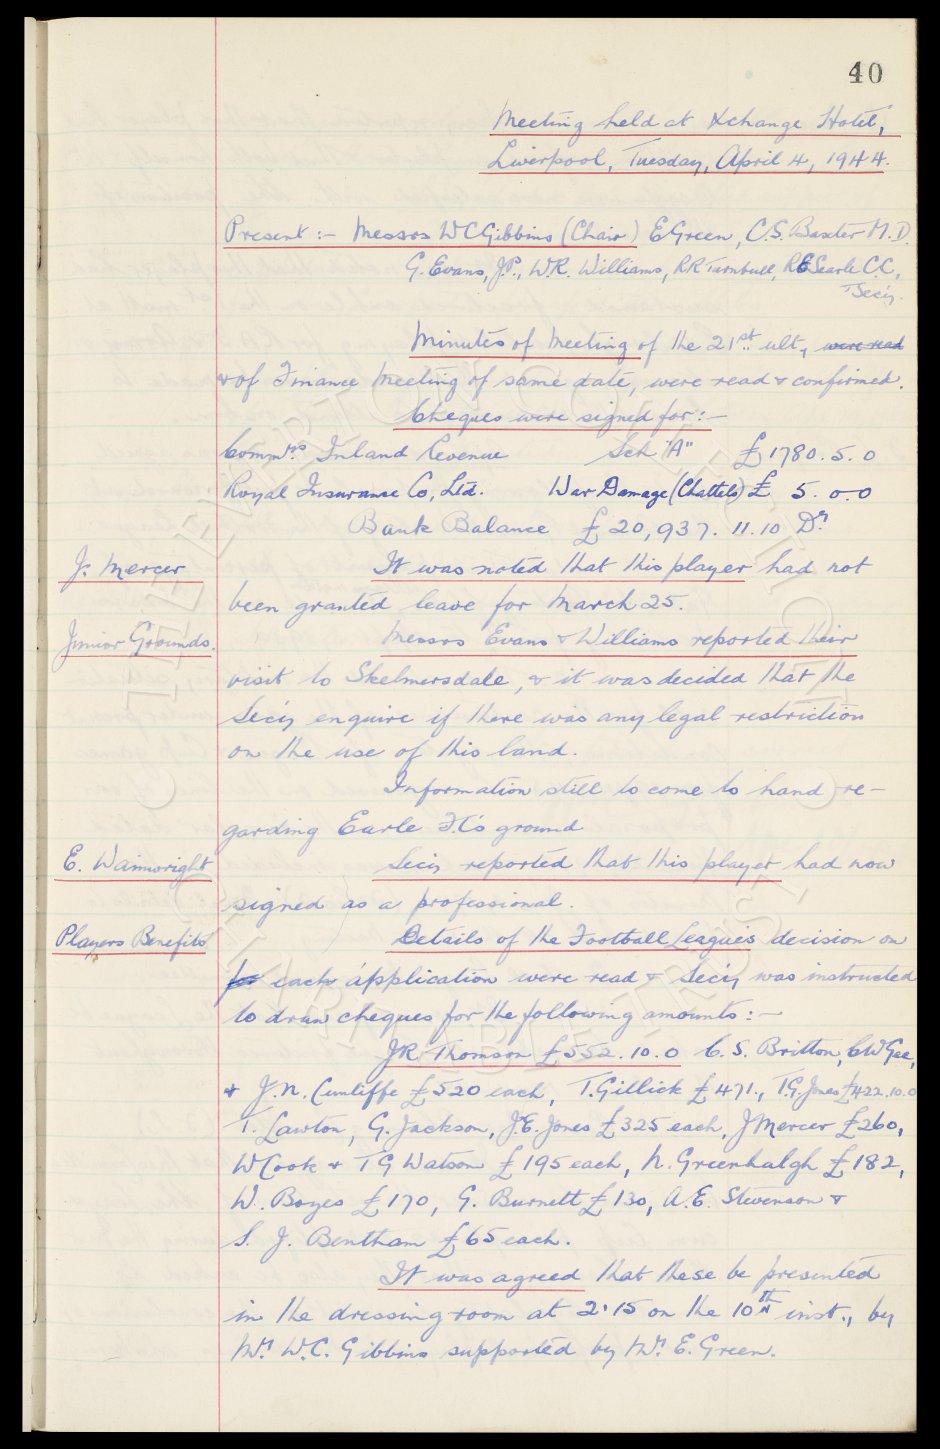 40
Meeting held at Xchange Hotel,
Liverpool, Tuesday, April 4, 1944.
Present :- Messrs W C Gibbins (Chair) E Green, C.S. Baxter M.D.
G. Evans, J.P., W.R. Williams, R R Turnbull, R E Searle C.C,
Secy.
Minutes of Meeting of the 21st ult, were read
& of Finance Meeting of same date, were read & confirmed.
Cheques were signed for :-
Commrs Inland Revenue Sch "A" £1780. 5. 0
Royal Insurance Co, Ltd. War Damage (Chattels) £ 5. 0. 0
Bank Balance £20,937. 11. 10 Dr
J. Mercer It was noted that this player had not
been granted leave for March 25.
Junior Grounds. Messrs Evans & Williams reported their
visit to Skelmersdale, & it was decided that the
Secy enquire if there was any legal restriction
on the use of this land.
Information still to come to hand re-
garding Earle F.C's ground
E. Wainwright Secy reported that this player had now
signed as a professional.
Players Benefits Details of the Football League's decision on
for each application were read & Secy was instructed
to draw cheques for the following amounts :-
J R Thomson £552. 10. 0 C. S. Britton, C W Gee,
& J. N. Cunliffe £520 each, T. Gillick £471., T.G. Jones £422. 10. 0
T. Lawton, G. Jackson, J.E. Jones £325 each, J Mercer £260,
W Cook & T G Watson £195 each, N. Greenhalgh £182,
W. Boyes £170, G. Burnett £130, A. E. Stevenson &
S. J. Bentham £65 each.
It was agreed that these be presented
in the dressing room at 2.15 on the 10th inst., by
Mr W.C. Gibbins supported by Mr E. Green.